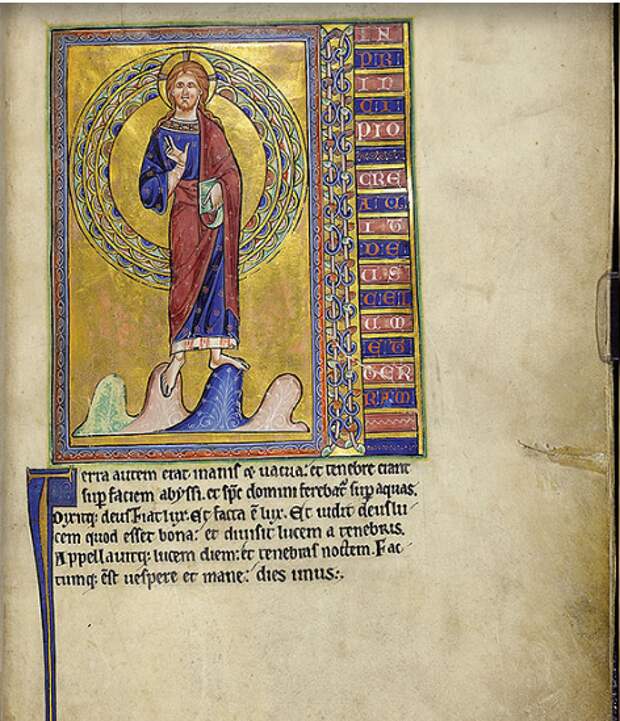 IN
PRI
IN
CI
PIO
CRE
AV
IT
DE
US
CEL
UM
ET
TER
RAM
Terra autem erat inanis et vacua: et tenebre erant
sup faciem abyssi. et spc domini ferebat sup aquas.
Dixitq: deus Fiat lux. Et facta e lux. Et vidit deus lu
cem quod esset bona: et divisit lucem a tenebris.
Appellavitq: lucem diem: et tenebras noctem. Fac
tumq: est vespere et mane: dies unus:.